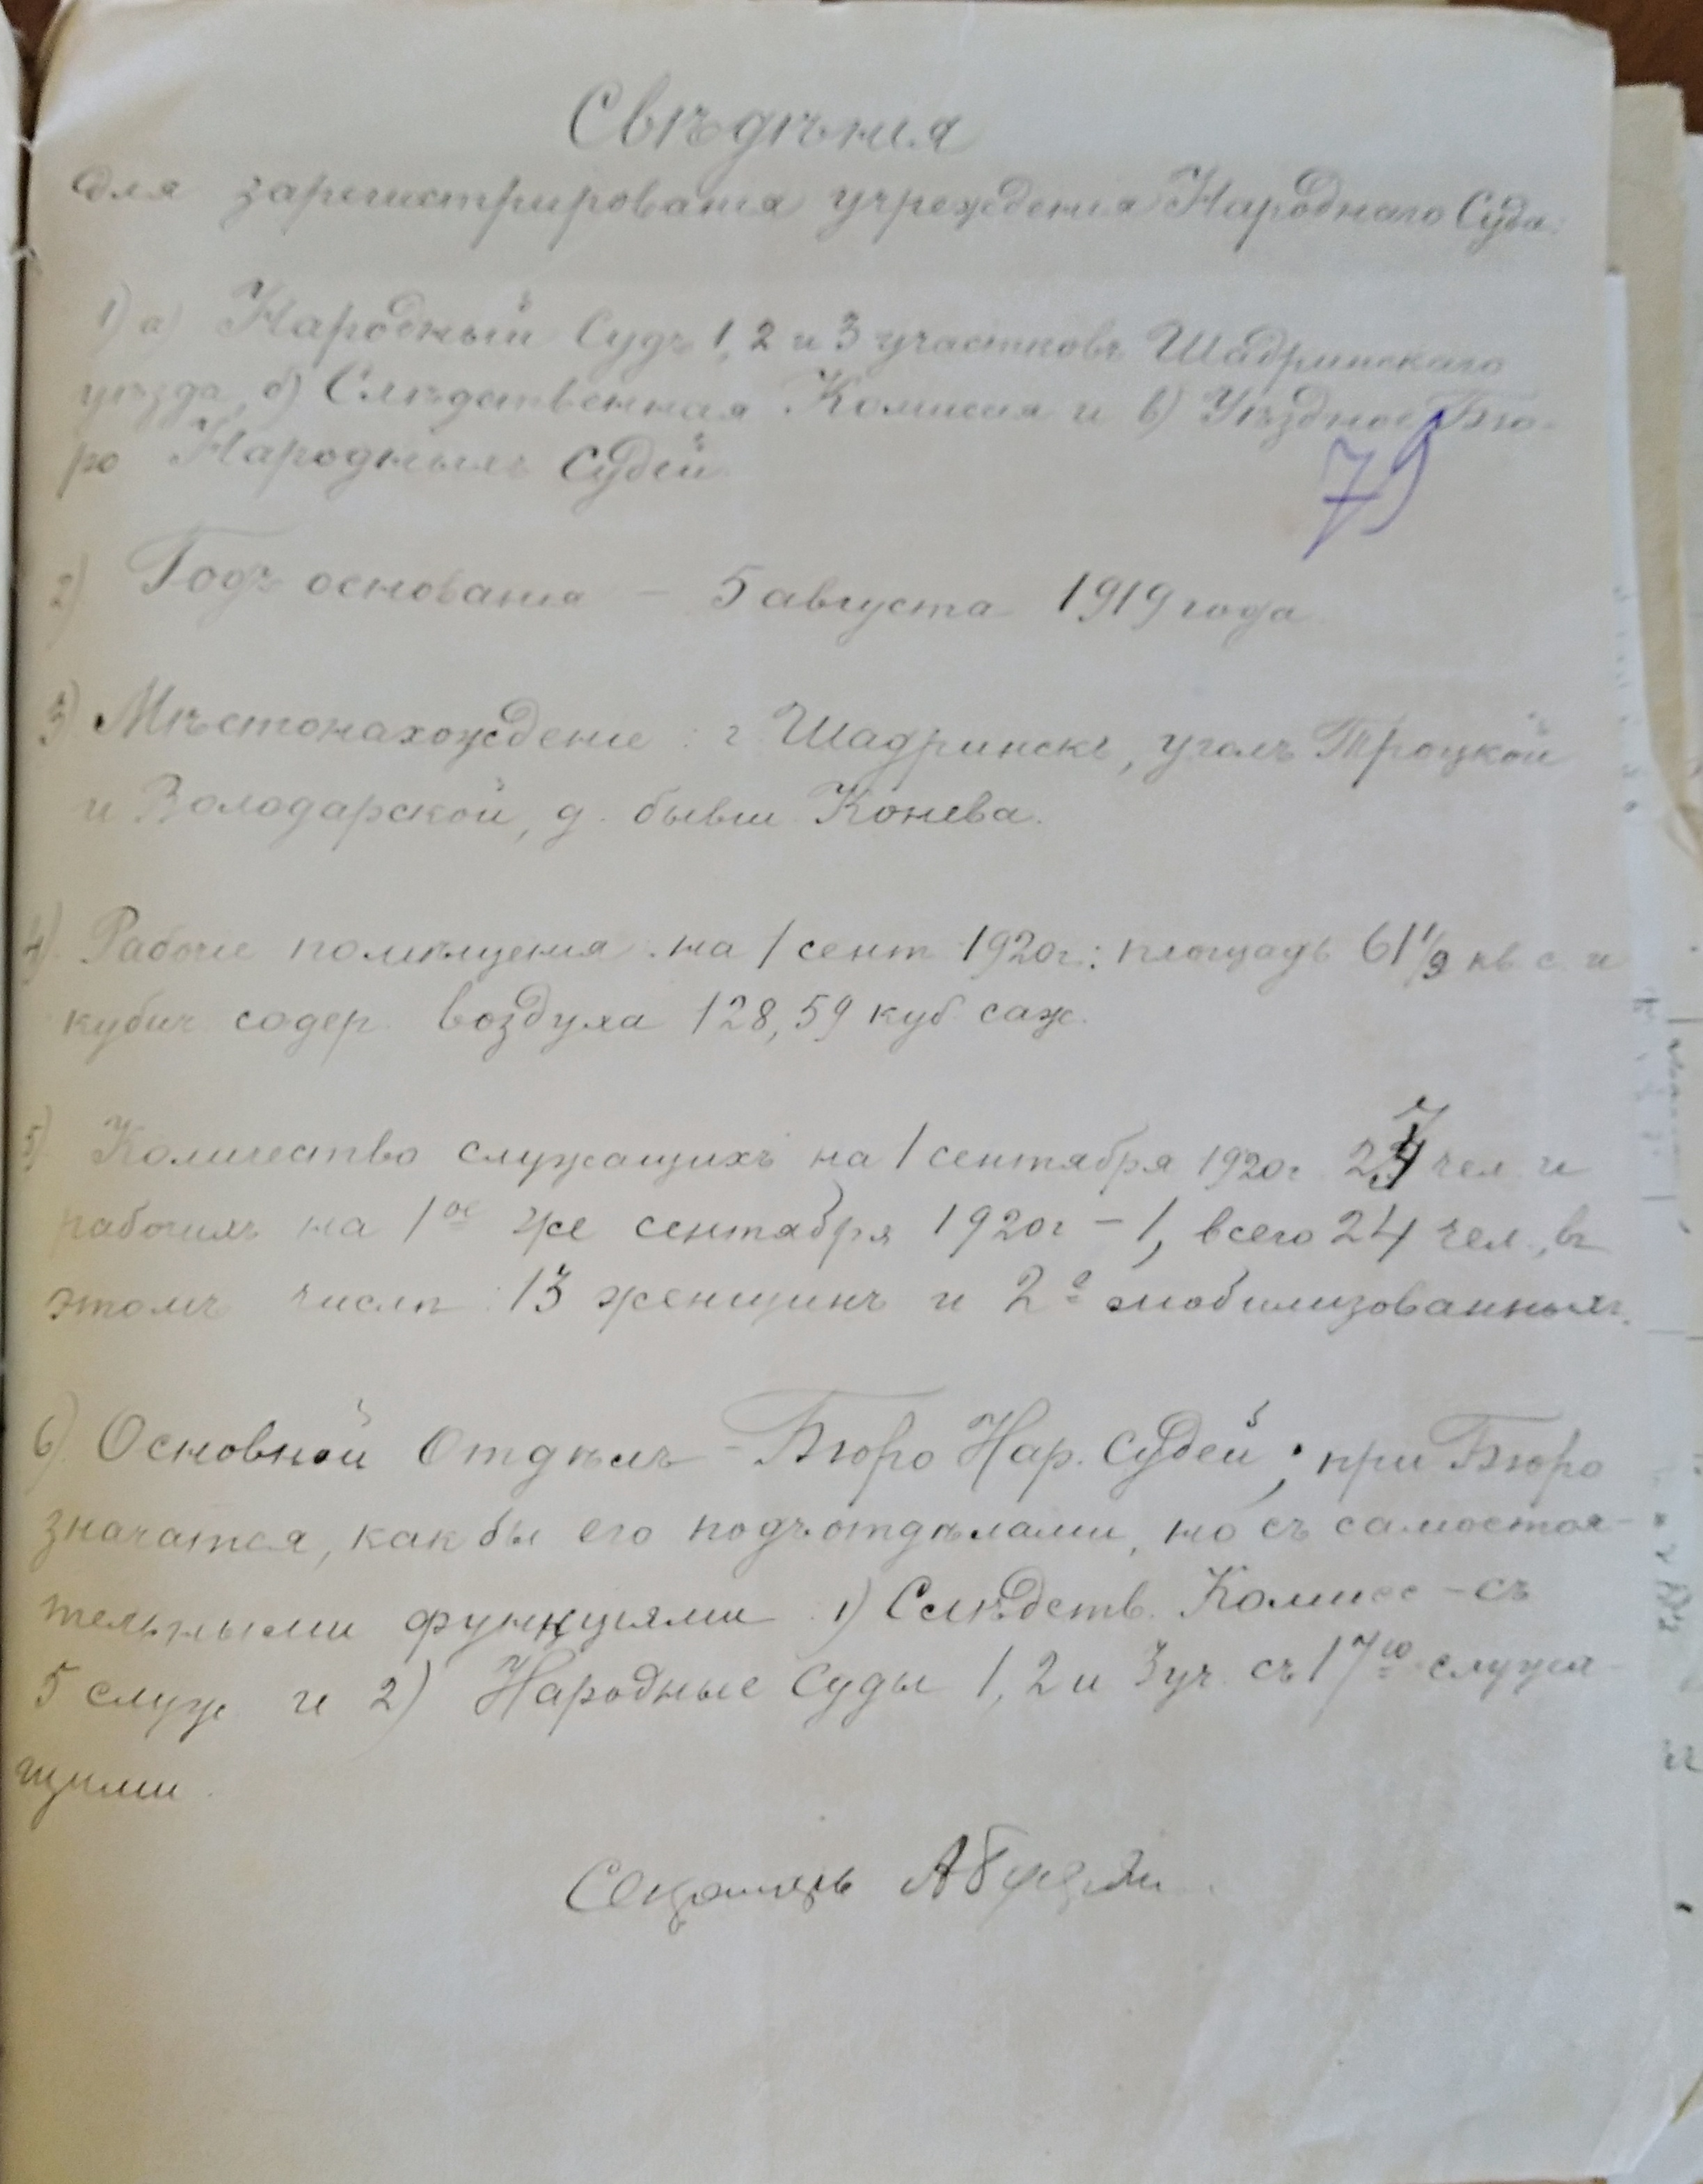 Свѣдѣния
для зарегистрирования учреждения Народнаго Суда:
1) а) Народный Судъ 1, 2 и 3 участковъ Шадринскаго
уѣзда, б) Слѣдственная Комисия и в) Уѣздное Бю-
ро Народныхъ Судей
79
2) Годъ основания – 5 августа 1919 года
3) Мѣстонахождение: г. Шадринскъ, уголъ Троцкой
и Володарской, д. бывш. Конева.
4) Рабочие помѣщения на 1 сент 1920г.: площадь 61 1/9 кв с. и
кубич содер. воздуха 128,59 куб. саж.
5) Количество служащихъ на 1 сентября 1920г. чел. и
рабочихъ на 1ое же сентября 1920г – 1, всего 24 чел., въ
этомъ числѣ 13 женщинъ и 2е мобилизованныхъ.
6) Основной Отдѣлъ – Бюро Нар. Судей; при Бюро
значатся, какбы его подъотдѣлами, но съ самостоя-
тельными функциями 1) Слѣдств. Комисс – съ
5 служ и 2) Народные Суды 1, 2 и 3 уч. съ 17ю служа-
щими.
Секретарь